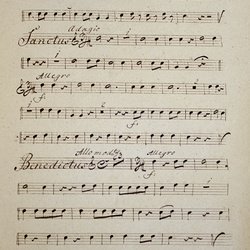 Adagio
Sanctus
Allegro
f.
All.o mod.to
Allegro
Benedictus
f.